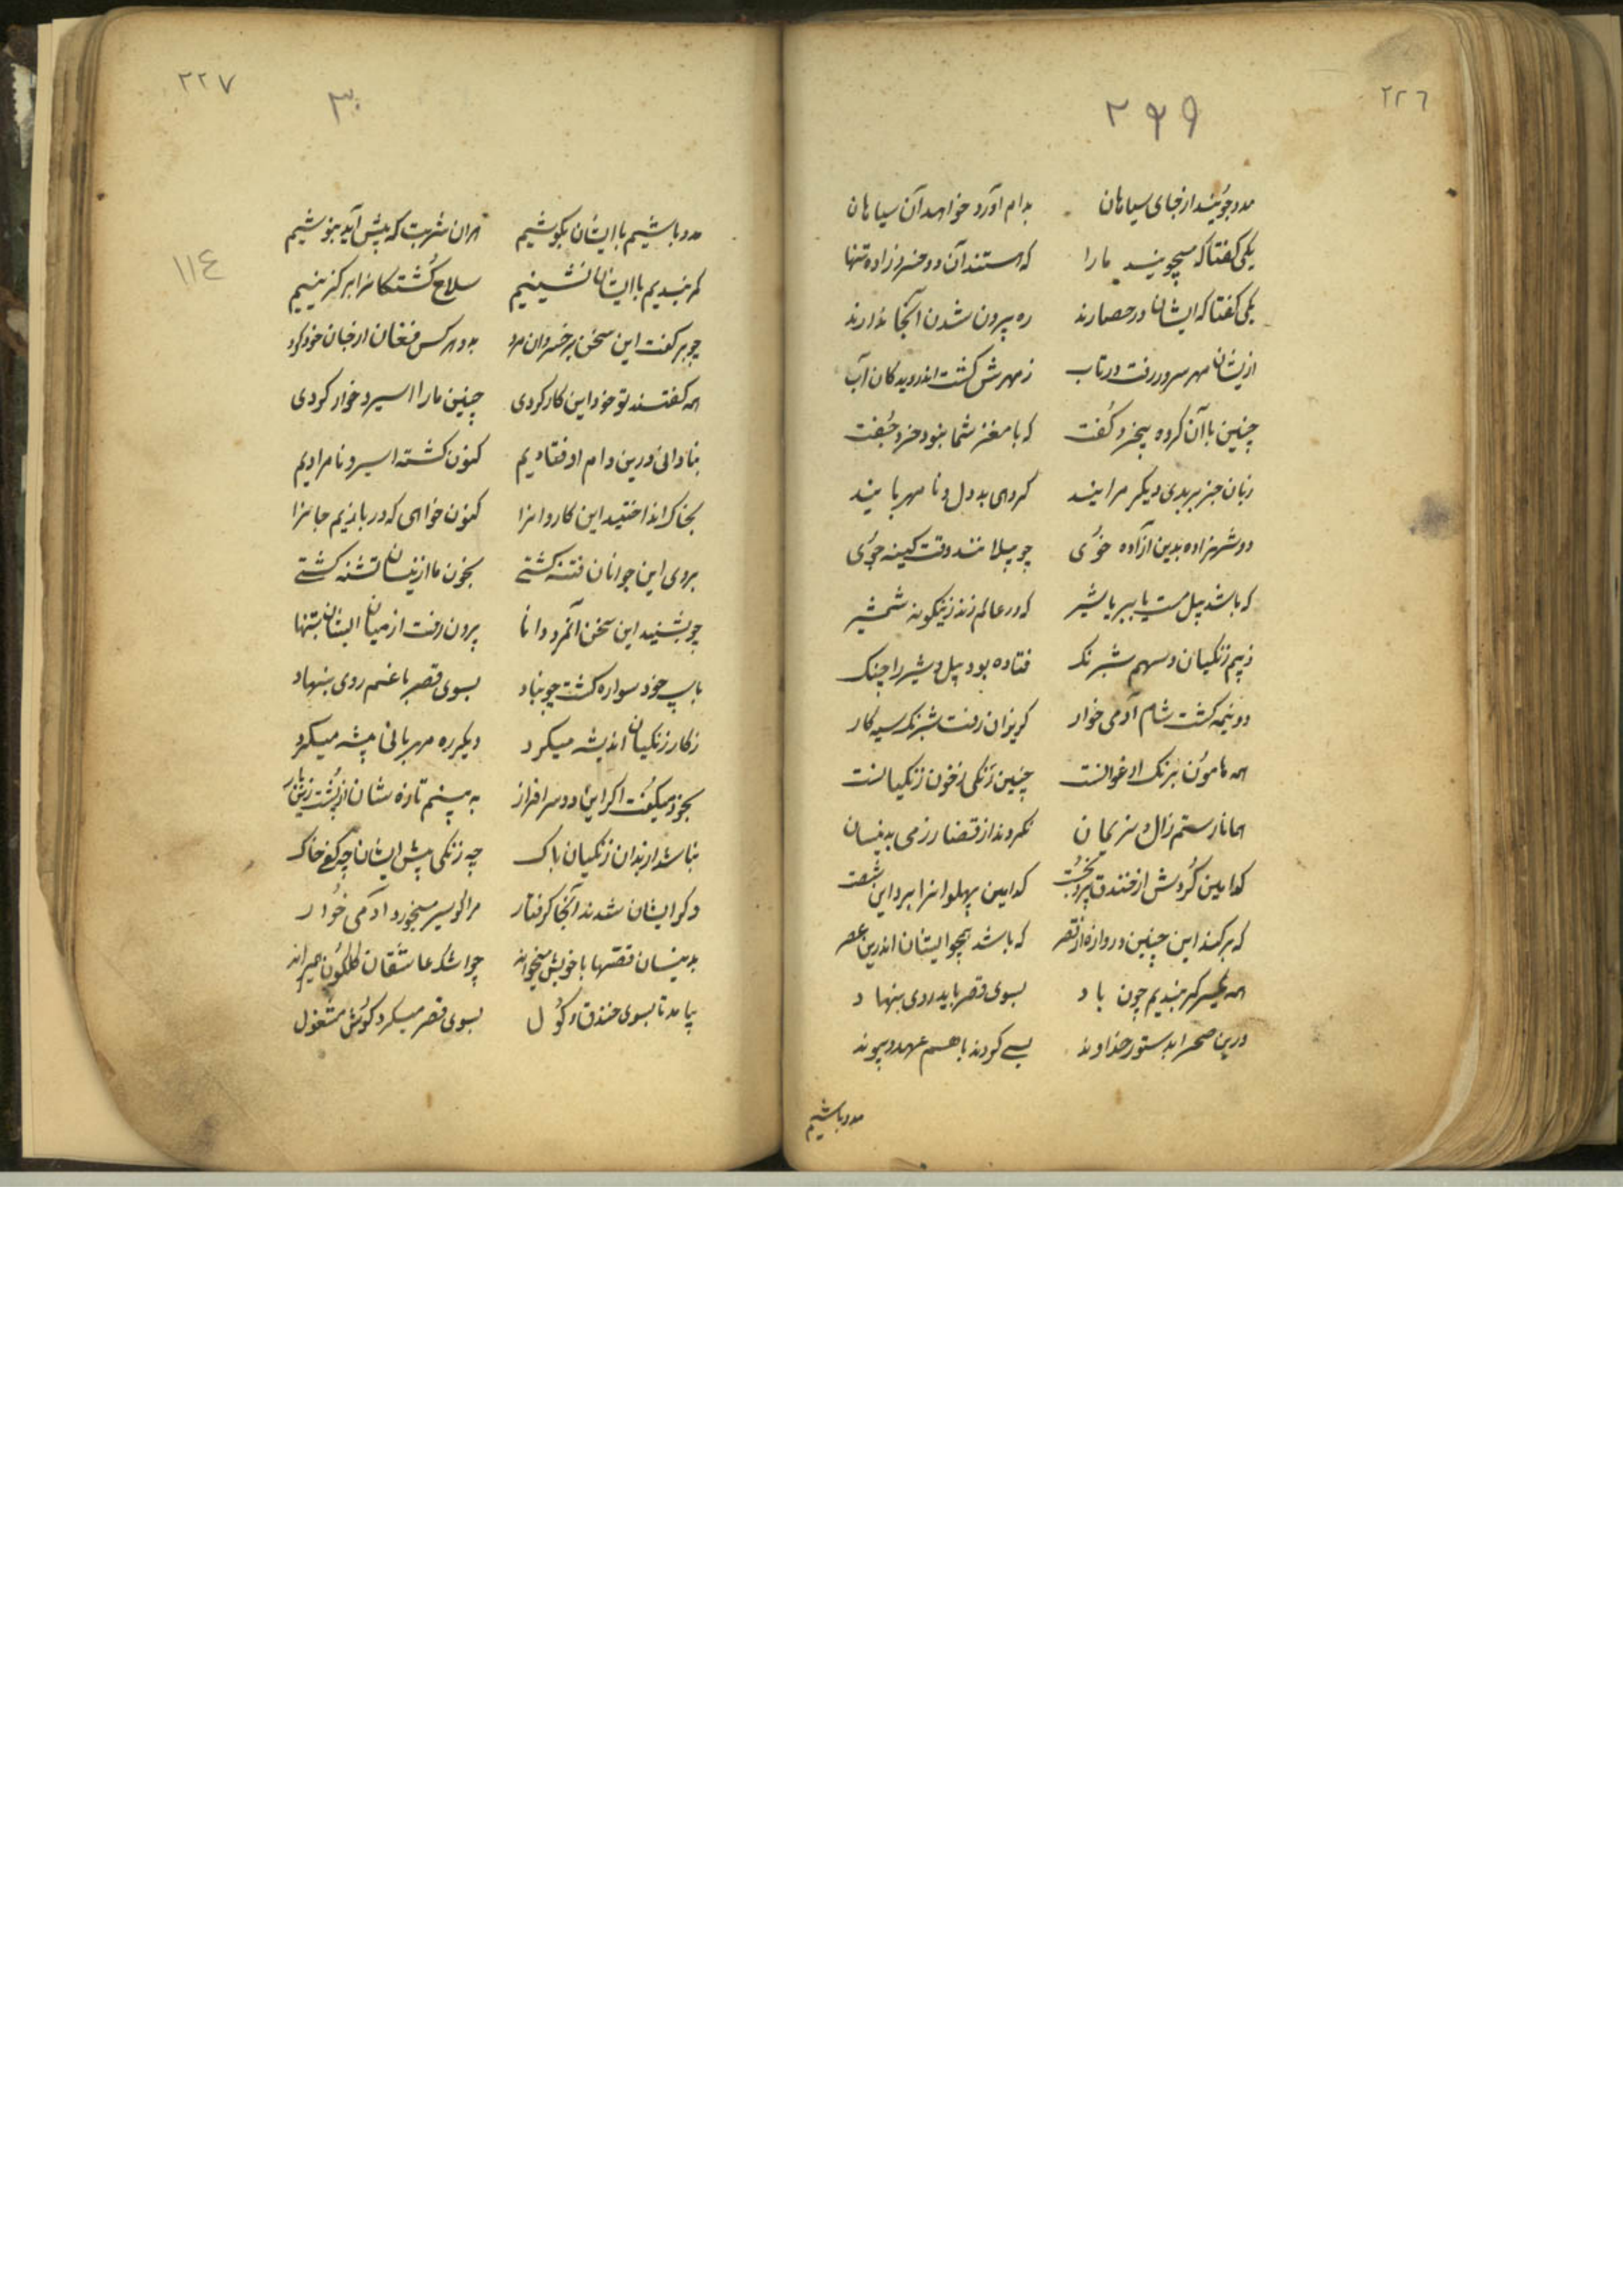 ٢٢٦
٢٩٩
مدد جویند از جای سیاهان بدام آورد خواهد آن سیاهان
یکی گفتا که میجویند ما را که هستند آن دو خسرو زاده تنها
یکی گفتا که ایشان در حصارند ره بیرون شدن آنجا ندارند
ازیشان مهر سرور رفت در تاب ز مهرش گشت اندر دیدگان آب
چنین با آن گروه بیخرد گفت که با مغز شما نبود خرد جفت
زبان جز بر بدی دیگر مرانید گروهی بد دل و نا مهربانید
دو شهزاده بدین آزاده خوئی چو پیلانند وقت کینه جوئی
که باشد پیل مست یا ببر یا شیر که در عالم زند زینگونه شمشیر
ز بیم زنگیان و سهم شبرنگ فتاده بود پیل و شیر را چنگ
دو نیمه گشت شام آدمی خوار گریزان رفت شبرنگ سیه کار
همه هامون برنگ ارغوانست چنین رنگی ز خون زنگیانست
همانا رستم زال و نریمان نکردند از قضا رزمی بدینسان
کدامین گردش از خندق کدامین پهلوانرا بر د این
که بر کند این چنین دروازه از قصر که باشد همچو ایشان اندرین عصر
همه یکسر کمر بندیم چون باد بسوی قصر باید روی بنهاد
درین صحرا بدستور خداوند بسی کردند با هم عهد و پیوند
مدد باشیم
٢٢٧
٣٠
١١٤
مدد باشیم با ایشان بکوشیم هران شربت که پیش آید بنوشیم
کمر بندیم با ایشان نشینیم سلاح کشتگانرا بر گزینیم
چو بر گفت این سخن بر خسروان مرد بد و هر کس فغان از جان خود کرد
همه گفتند تو خود این کار کردی چنین ما را اسیر و خوار کردی
بنادانی درین دام اوفتادیم کنون گشته اسیر و نامرادیم
بخاک انداختید این کاروانرا کنون خواهی که در بازیم جانرا
بروی این جوانان فتنه گشتی بخون ما ازینسان تشنه گشتی
چو بشنید این سخن آنمرد دانا برون رفت از میان ایشان بتنها
باسپ خود سواره گشت چو بناد بسوی قصر با غم روی بنهاد
ز کار زنگیان اندیشه میکرد دیگر ره مهربانی پیشه میکرد
بخود میگفت اگر این دو سرافراز به بینم تازه شان از پشت زین باز
نباشد از بدان زنگیان باک چه زنگی پیش ایشان چه کفی خاک
و گر ایشان شدند آنجا گرفتار مرا گو سیر میخورد آدمی خوار
بدینسان قصها با خویش میخواند چو اشک عاشقان گلگون همیراند
بیامد تا بسوی خندق و گول بسوی قصر میکرد گوش مشغول